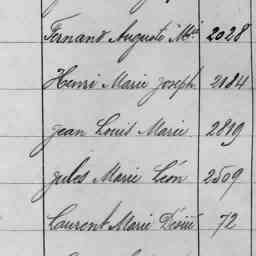 Fernand Auguste Mie 2028
Henri Marie Joseph 2184
Jean Louis Marie 2819
Jules Marie Léon 2509
Laurent Marie Désiré 72